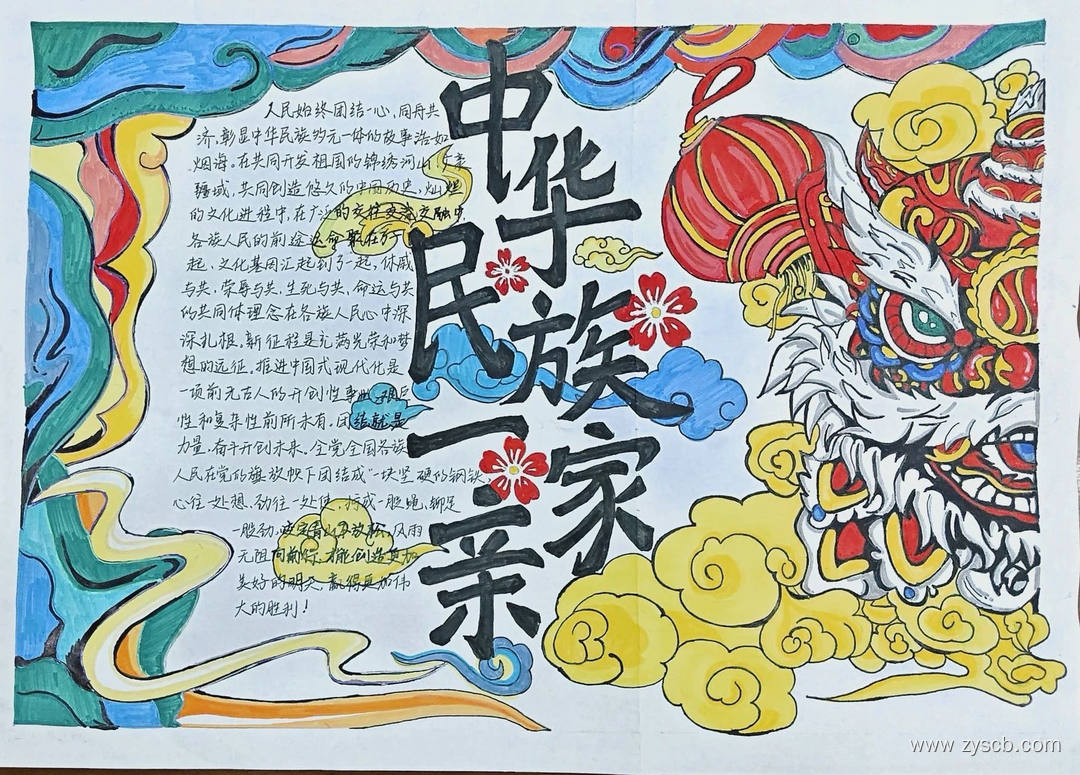 中华
民族
一家
亲
人民始终团结一心、同舟共
济，彰显中华民族多元一体的故事浩如
烟海。在共同开发祖国的锦绣河山
疆域，共同创造悠久的中国历史，灿烂
的文化进程中，在广泛的交往交流交融中，
各族人民的前途命运
起，文化基因汇起到了一起，休戚
与共、荣辱与共、生死与共、命运与共
的共同体理念在各族人民心中深
深扎根。新征程是充满光荣和梦
想的远征，推进中国式现代化是
一项前无古人的开创性事业，艰巨
性和复杂性前所未有。团结就是
力量，奋斗开创未来。全党全国各族
人民在党的旗帜下团结成“一块坚硬的钢铁，
心往一处想、劲往一处使，拧成一股绳、铆足
一股劲，咬定青山不放松，风雨
无阻向前行，才能创造更加
美好的明天，赢得更加伟
大的胜利！
www.zyscb.com